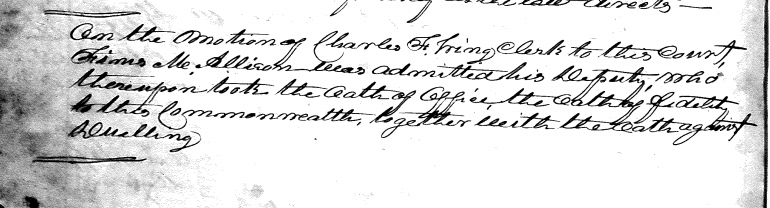 law directs —
On the motion of Charles F. Wing Clerk to this Court,
M. Allison was admitted his Deputy, who
thereupon took the oath of Office, the oath of fidelity
to this Commonwealth, together with the oath against
Duelling